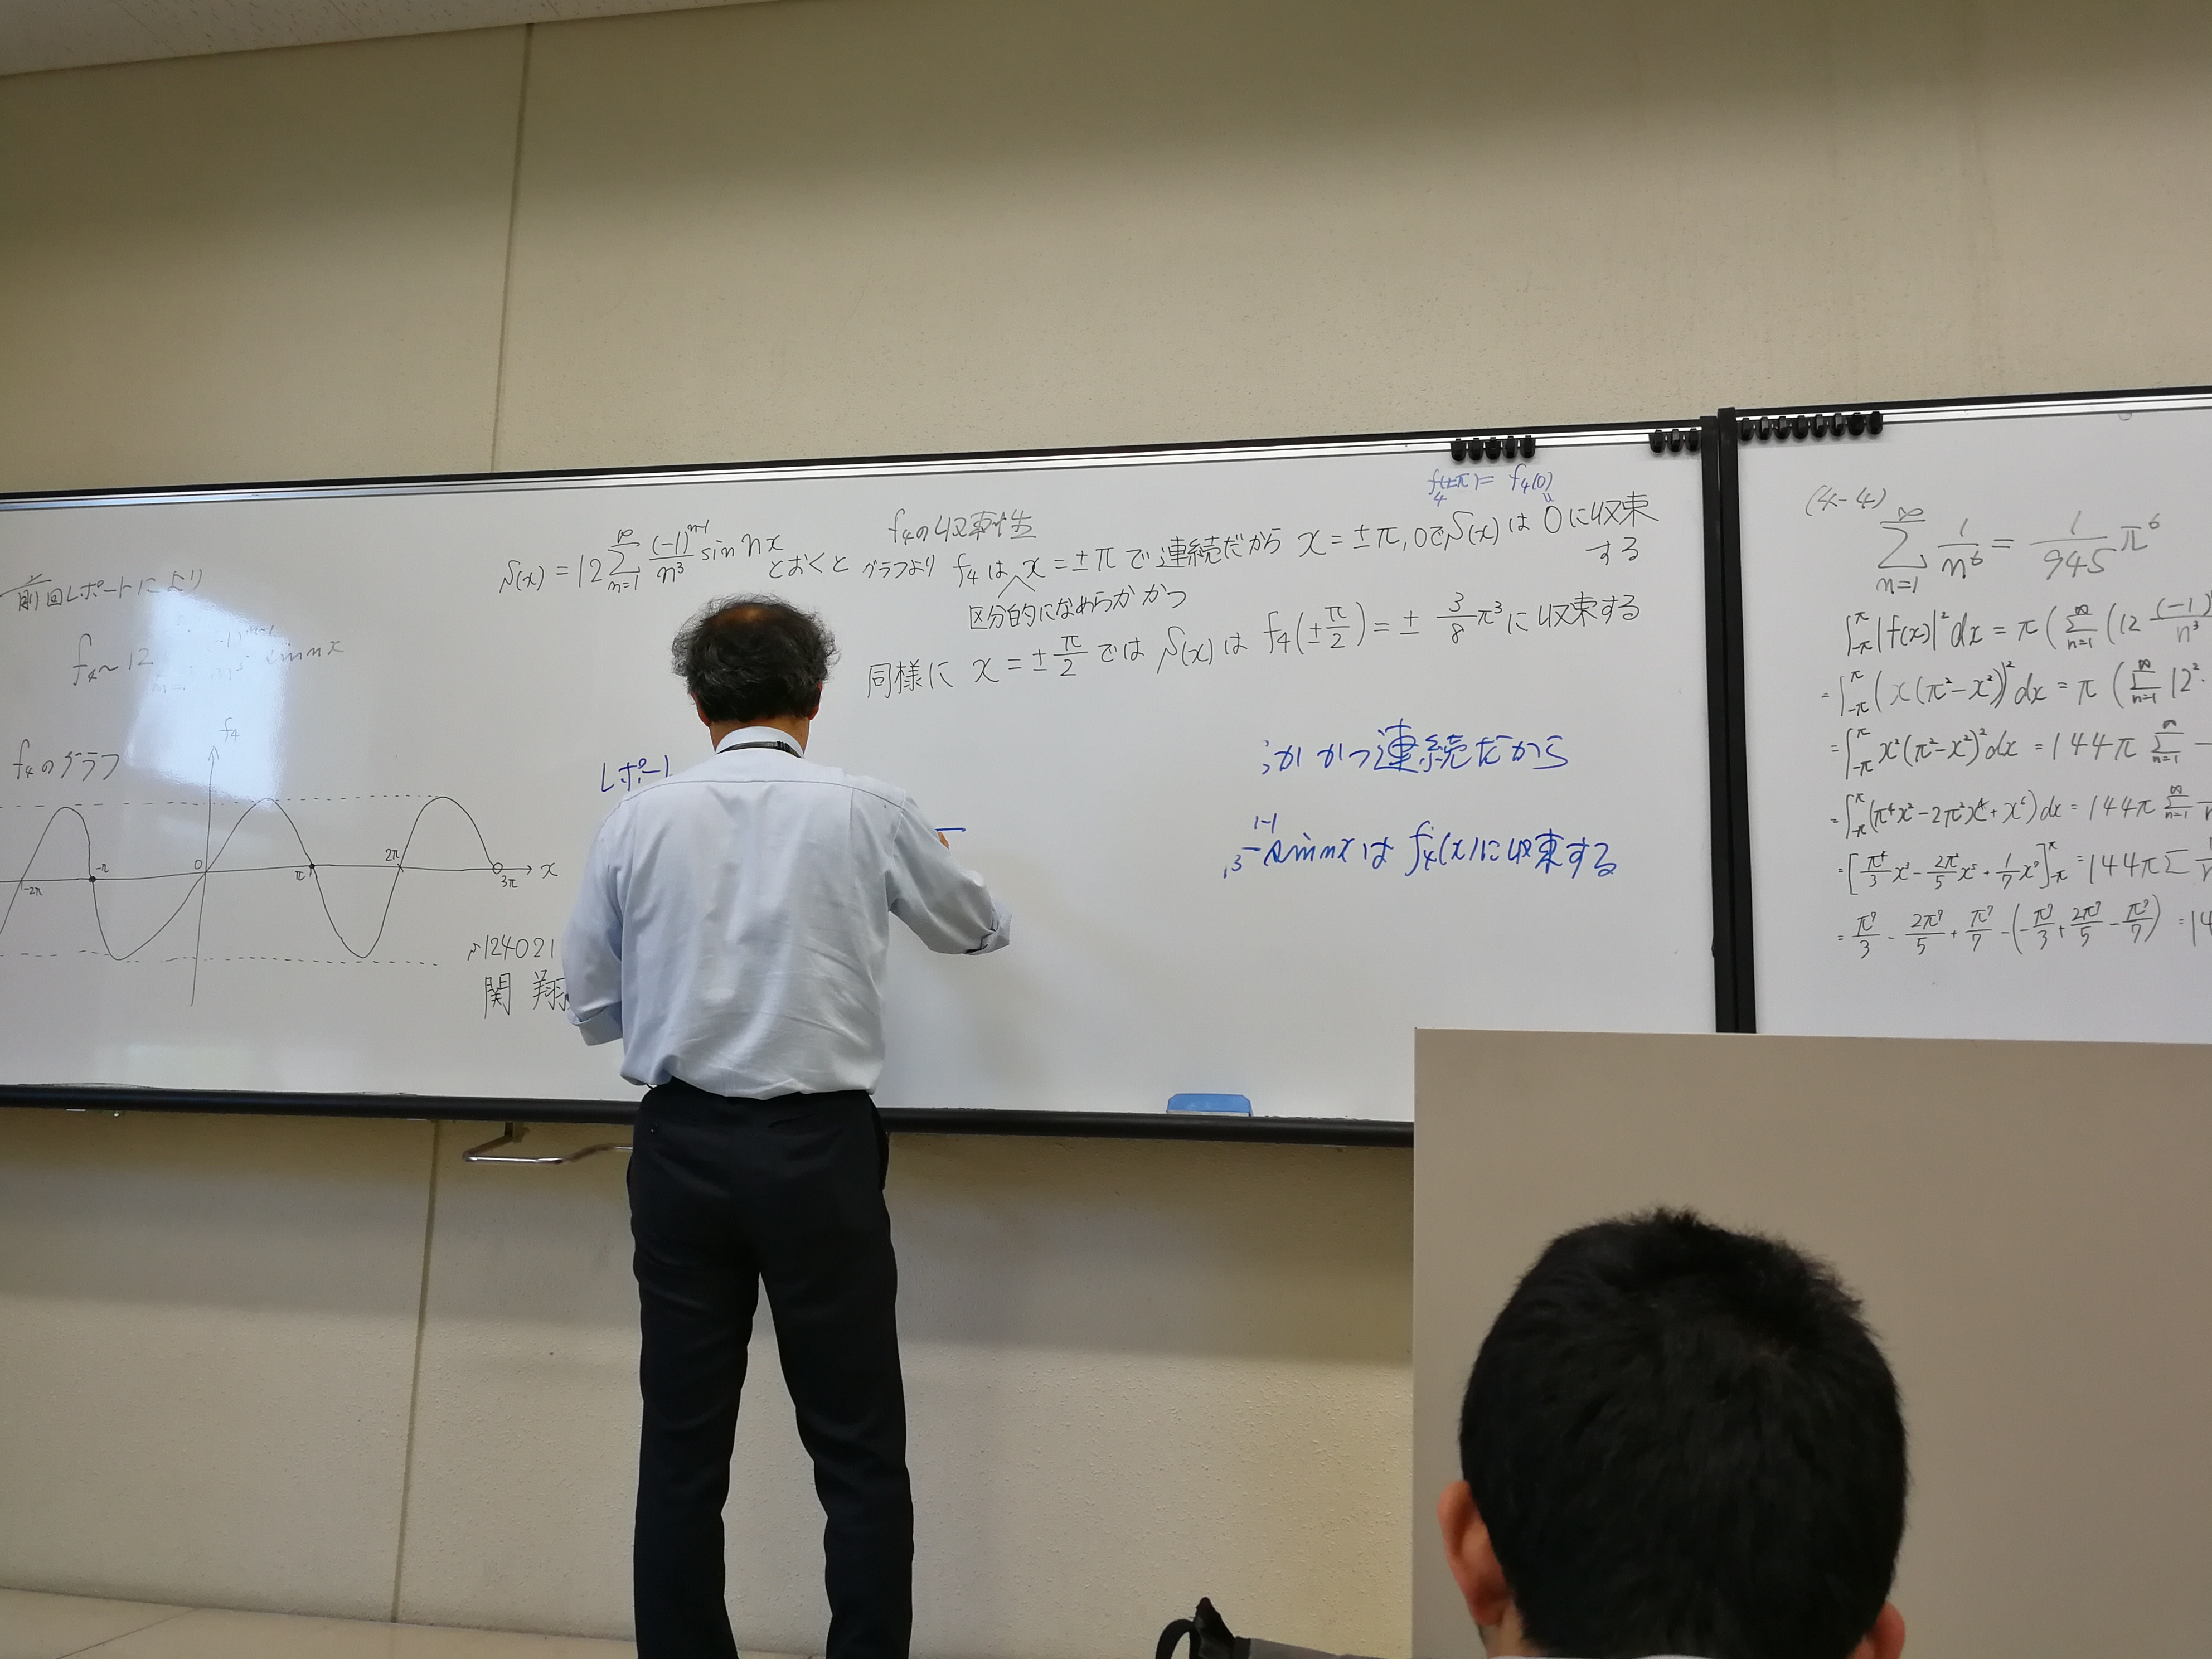 前回レポートにより
f₄ ~ 12 (-1)^{n-1} sin nx
f₄のグラフ
f₄
-2π -π 0 π 2π 3π x
S(x) = 12 \sum_{n=1}^{∞} \frac{(-1)^{n-1}}{n³} sin nx とおくと
s124021
関 翔
f₄の収束性
グラフより f₄は x = ±π で連続だから x = ±π, 0でS(x)は 0に収束
する
区分的になめらか かつ
f₄(±π) = f₄(0)
=
同様に x = ±\frac{π}{2} では S(x)は f₄(±\frac{π}{2}) = ± \frac{3}{8}π³に収束する
レポー
か かつ連続だから
sin nx は f₄(x)に収束する
(4-4)
\sum_{n=1}^{∞} \frac{1}{n⁶} = \frac{1}{945} π⁶
∫_{-π}^{π} |f(x)|² dx = π ( \sum_{n=1}^{∞} (12 \frac{(-1)}{n³}
= ∫_{-π}^{π} (x(π²-x²))² dx = π ( \sum_{n=1}^{∞} 12² ·
= ∫_{-π}^{π} x²(π²-x²)² dx = 144π \sum_{n=1}^{∞}
= ∫_{-π}^{π} (π⁴x² - 2π²x⁴ + x⁶) dx = 144π \sum_{n=1}^{∞}
= [ \frac{π⁴}{3} x³ - \frac{2π²}{5} x⁵ + \frac{1}{7} x⁷ ]_{-π}^{π} = 144π Σ
= \frac{π⁷}{3} - \frac{2π⁷}{5} + \frac{π⁷}{7} - (-\frac{π⁷}{3} + \frac{2π⁷}{5} - \frac{π⁷}{7}) = 14